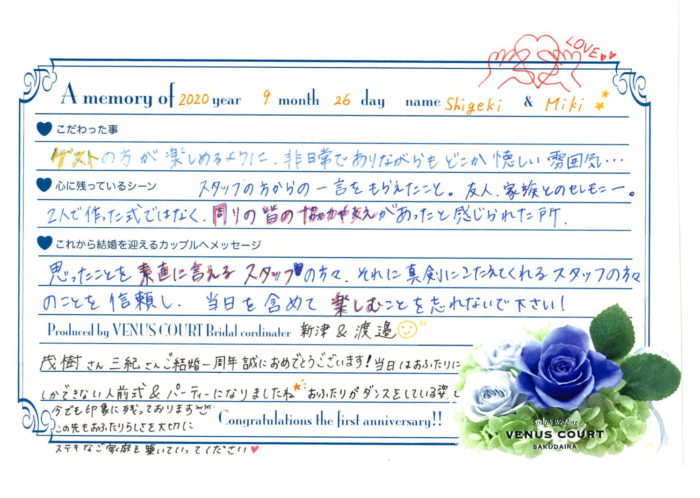 LOVE
A memory of 2020 year 9 month 26 day name Shigeki & Miki
こだわった事
ゲストの方が楽しめるように、非日常でありながらもどこか懐しい雰囲気…
心に残っているシーン スタッフの方からの一言をもらえたこと。友人、家族とのセレモニー。
2人で作った式ではなく、周りの皆の協力や支えがあったと感じられた所。
これから結婚を迎えるカップルへメッセージ
思ったことを素直に言えるスタッフの方々、それに真剣にこたえてくれるスタッフの方々
のことを信頼し、当日を含めて楽しむことを忘れないで下さい！
Produced by VENUS COURT Bridal cordinater 新津 & 渡邉
茂樹さん三紀さんご結婚一周年誠におめでとうございます！当日はおふたりに
しかできない人前式&パーティーになりましたね おふたりがダンスをしている姿、
今でも印象に残っております
この先もおふたりらしさを大切に
ステキなご家庭を築いていってください
Congratulations the first anniversary!!
VENUS COURT
SAKUDAIRA